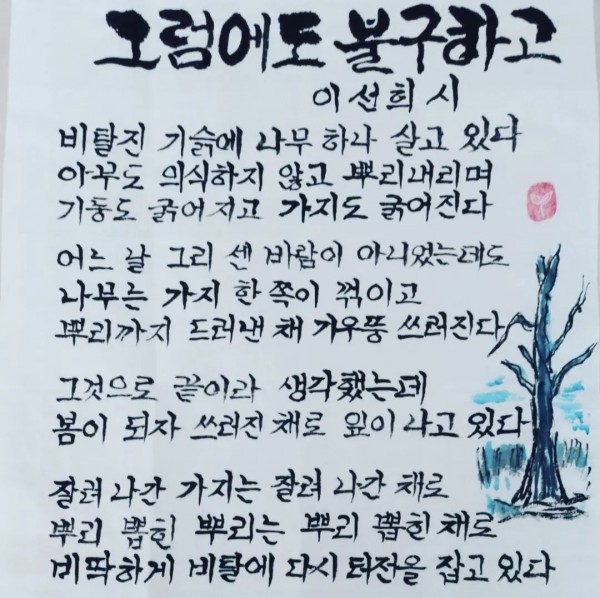 그럼에도 불구하고
이 선희 시
비탈진 기슭에 나무 하나 살고 있다
아무도 의식하지 않고 뿌리내리며
기둥도 굵어지고 가지도 굵어진다
어느 날 그리 센 바람이 아니었는데도
나무는 가지 한 쪽이 꺾이고
뿌리까지 드러낸 채 기우뚱 쓰러진다
그것으로 끝이라 생각했는데
봄이 되자 쓰러진 채로 잎이 나고 있다
잘려 나간 가지는 잘려 나간 채로
뿌리 뽑힌 뿌리는 뿌리 뽑힌 채로
비딱하게 비탈에 다시 터전을 잡고 있다